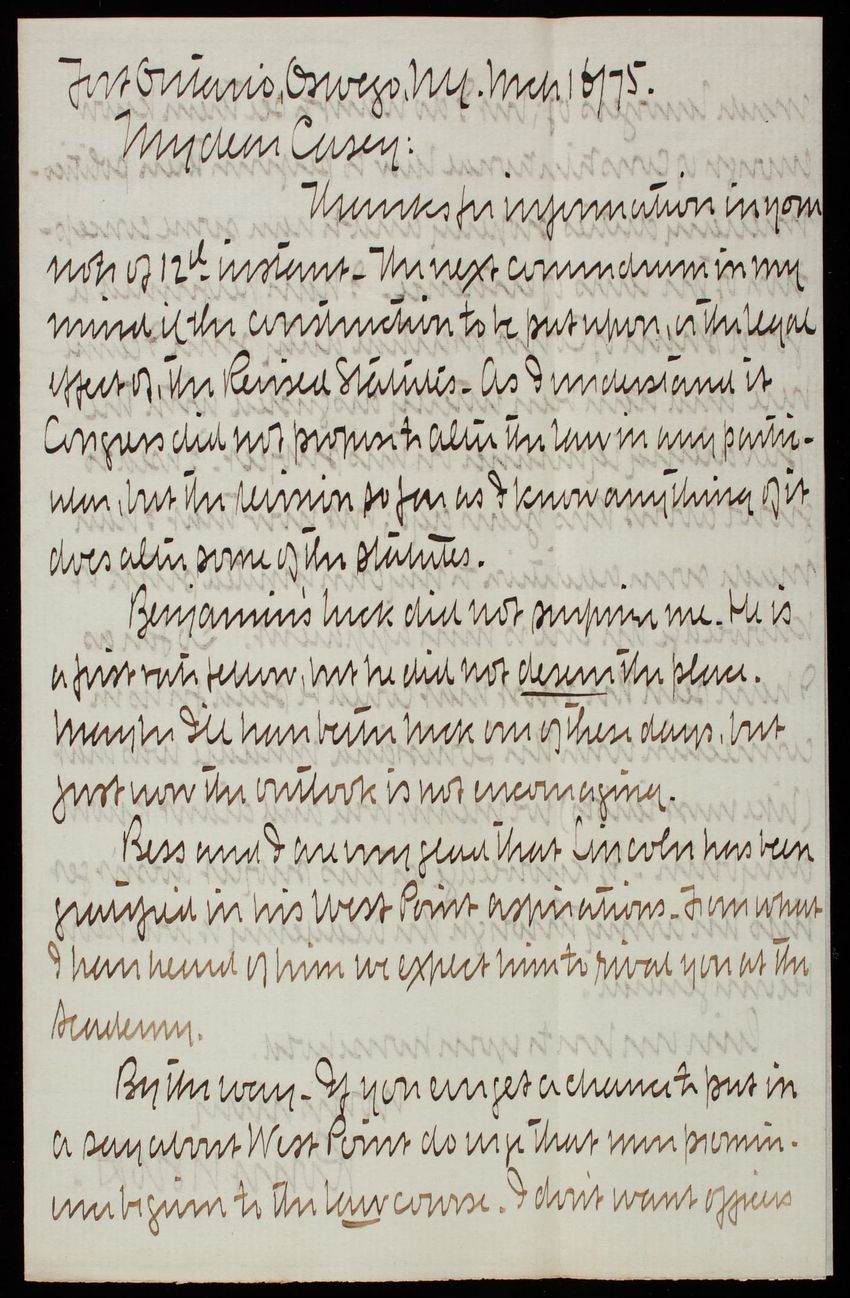 Fort Ontario, Oswego, N.Y. Mch 16/75.
My dear Casey:
Thanks for information in your
note of 12th instant - The next conundrum in my
mind is the construction to be put upon, or the legal
effect of, the Revised Statutes - As I understand it
Congress did not propose to alter the law in any partic-
ular, but the revision so far as I know anything of it
does alter some of the statutes.
Benjamin's luck did not surprise me - He is
a first rate fellow, but he did not deserve the place.
Maybe I'll have better luck one of these days, but
just now the outlook is not encouraging.
Bess and I are very glad that Lincoln has been
gratified in his West Point aspirations - From what
I have heard of him we expect him to rival you at the
Academy.
By the way - If you can get a chance to put in
a say about West Point do urge that more promin-
ence be given to the law course. I don't want officers